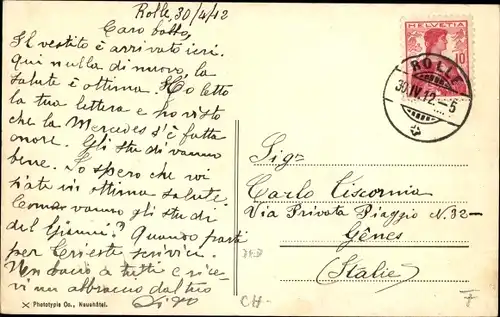 Rolle, 30/4/12
Caro babbo,
Il vestito è arrivato ieri.
Qui nulla di nuovo, la
salute è ottima. Ho letto
la tua lettera e ho visto
che la Mercedes s'è fatta
onore. Gli studi vanno
bene. Io spero che voi
siate in ottima salute.
Come vanno gli studi
del Gianni? Quando parti
per Trieste scrivici.
Un bacio a tutti e rice-
vi un abbraccio dal tuo
Phototypie Co., Neuchâtel.
HELVETIA
10
ROLLE
30.IV.12-5
Sig.
Carlo Tiscornia
Via Privata Piaggio N.32-
Gênes
(Italie)
CH-